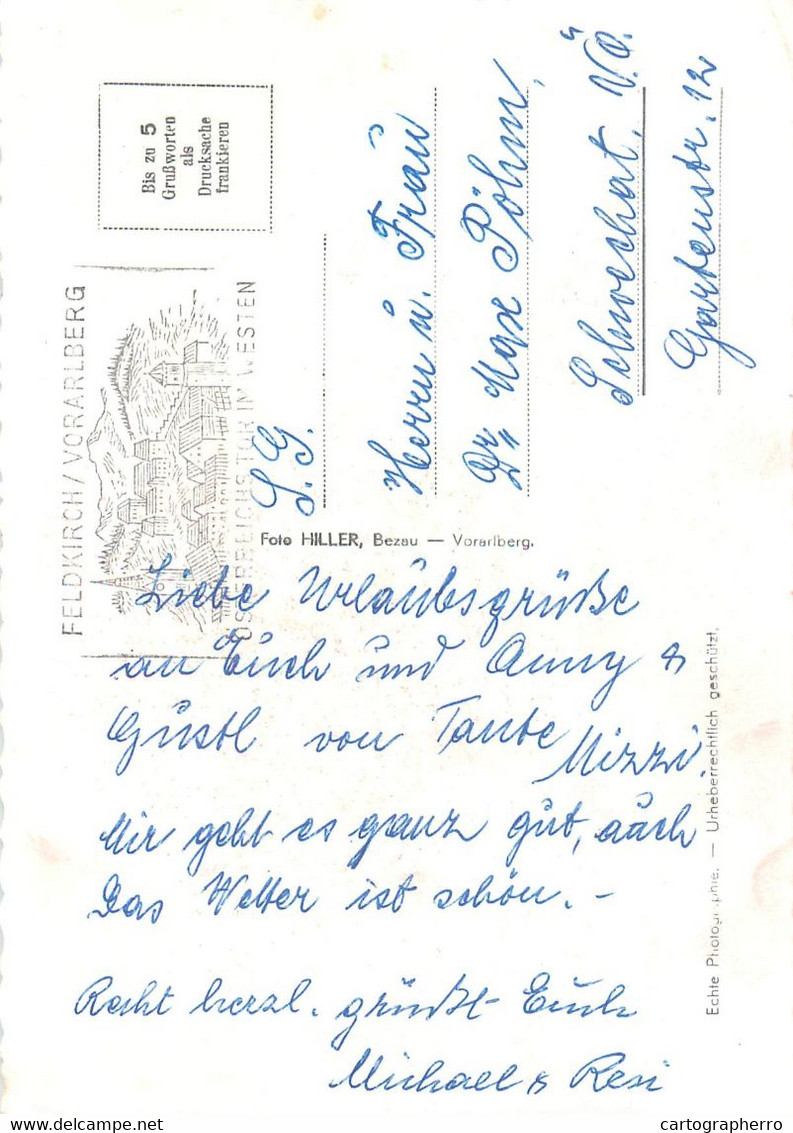 Bis zu 5
Grußworten
als
Drucksache
frankieren
FELDKIRCH/VORARLBERG
ÖSTERREICHS TOR IM WESTEN
S.G.
Herrn u. Frau
Dr. Max Pöhm,
Schwechat, N.Ö.
Gartenstr. 12
Foto HILLER, Bezau — Vorarlberg.
Liebe Urlaubsgrüße
an Euch und Anny &
Gustl von Tante
Mizzi.
Mir geht es ganz gut, auch
das Wetter ist schön. –
Recht herzl. grüßt Euch
Michael & Resi
Echte Photographie. — Urheberrechtlich geschützt.
cartographerro